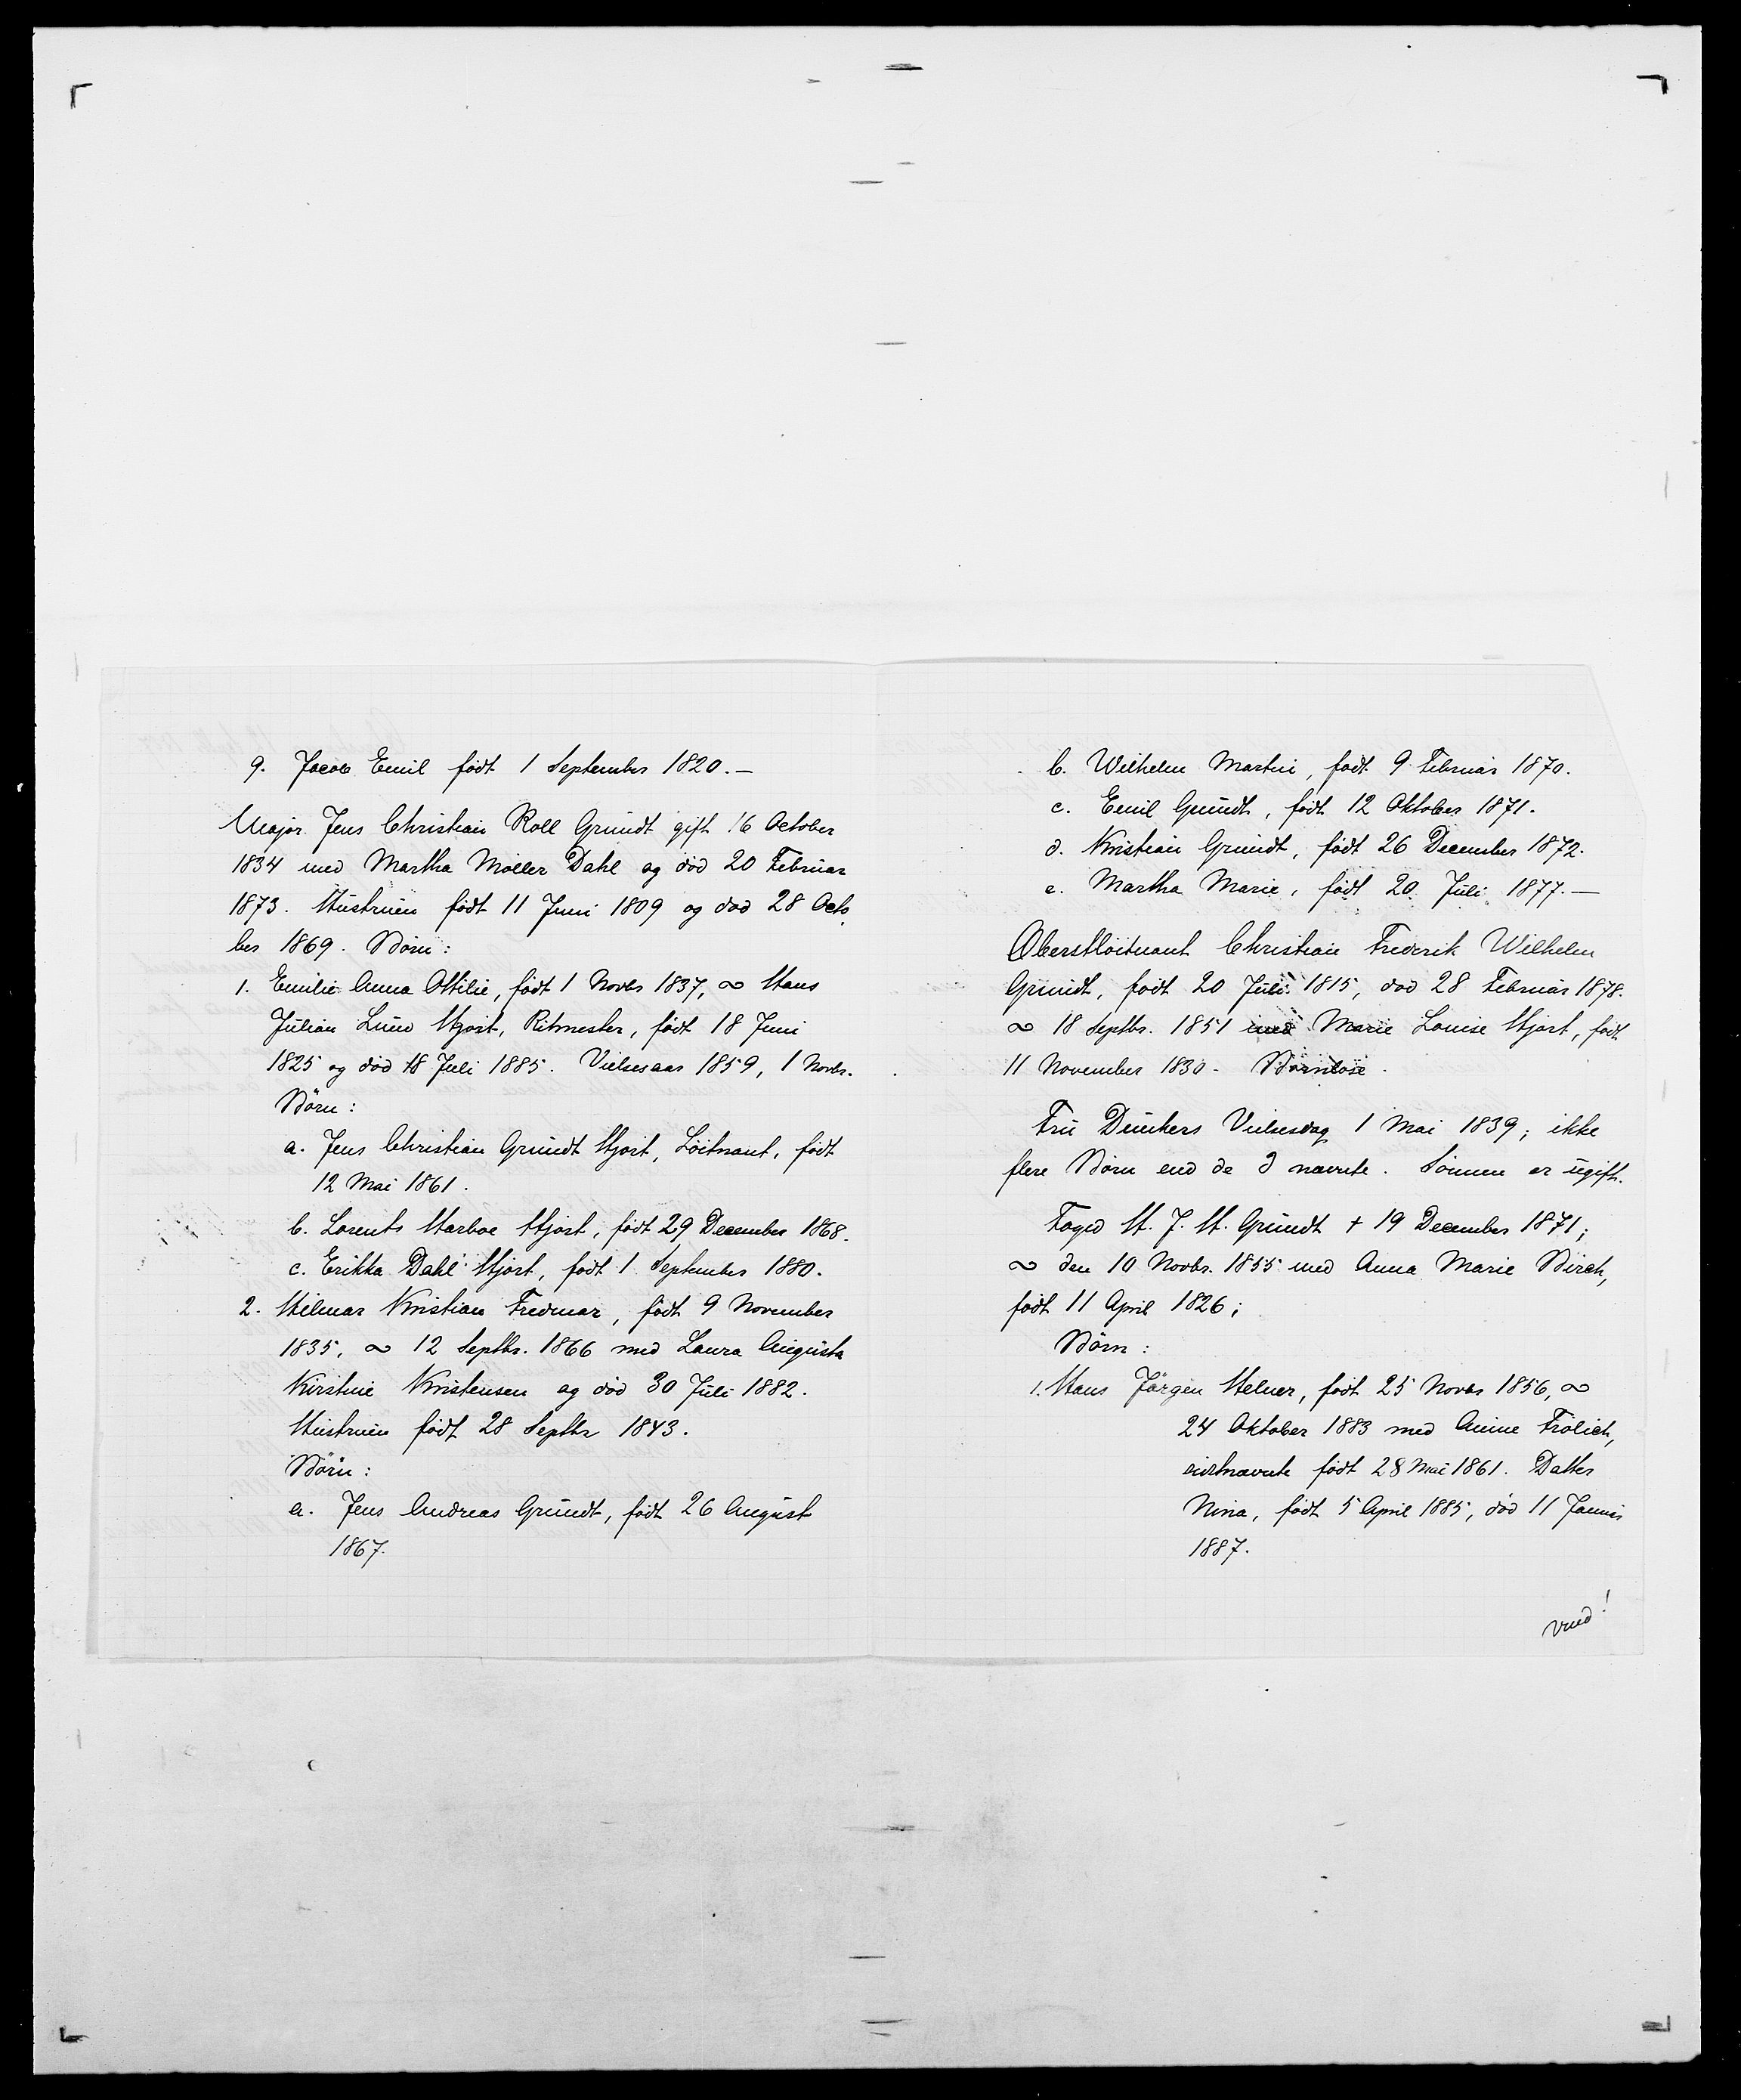 9. Jacob Emil født 1 September 1820.—
Major Jens Christian Roll Gründt gift 16 October
1834 med Martha Møller Dahl og død 20 Februar
1873. Hustruen født 11 Juni 1809 og død 28 Octo
ber 1869. Börn:
1. Emilie Anna Ottilie, født 1 Novbr 1837, ∞ Hans
Julian Lund Hjort, Ritmester, født 18 Juni
1825 og død 18 Juli 1885. Vielsesaar 1859, 1 Novbr.
Börn:
a. Jens Christian Gründt Hjort, Löitnant, født
12 Mai 1861.
b. Lorents Harboe Hjort, født 29 December 1868.
c. Erikka Dahl Hjort, født 1 September 1880.
2. Hilmar Kristian Fredmar, født 9 November
1835, ∞ 12 Septbr. 1866 med Laura Augusta
Kirstine Kristensen og død 30 Juli 1882.
Hustruen født 28 Septbr 1843.
Börn:
a. Jens Andreas Gründt, født 26 August
1867.
b. Wilhelm Martin, født 9 Februar 1870.
c. Emil Gründt, født 12 Oktober 1871.
d. Kristian Gründt, født 26 December 1872.
e. Martha Marie, født 20. Juli 1877.—
Oberstlöitnant Christian Frederik Wilhelm
Gründt, født 20 Juli 1815, død 28 Februar 1878.
∞ 18 Septbr. 1851 med Marie Louise Hjort, født
11 November 1830. Börnlöse.
Fru Dunkers Vielsesdag 1 Mai 1839; ikke
flere Börn end de 2 nævnte. Sönnen er ugift.
Foged H. J. H. Gründt † 19 December 1871;
∞ den 10 Novbr. 1855 med Anna Marie Birch,
født 11 April 1826;
Börn:
1. Hans Jörgen Helner, født 25 Novbr 1856, ∞
24 Oktober 1883 med Anine Frölich,
sidstnævnte født 28 Mai 1861. Datter
Nina, født 5 April 1885, død 11 Januar
1887.
vend!